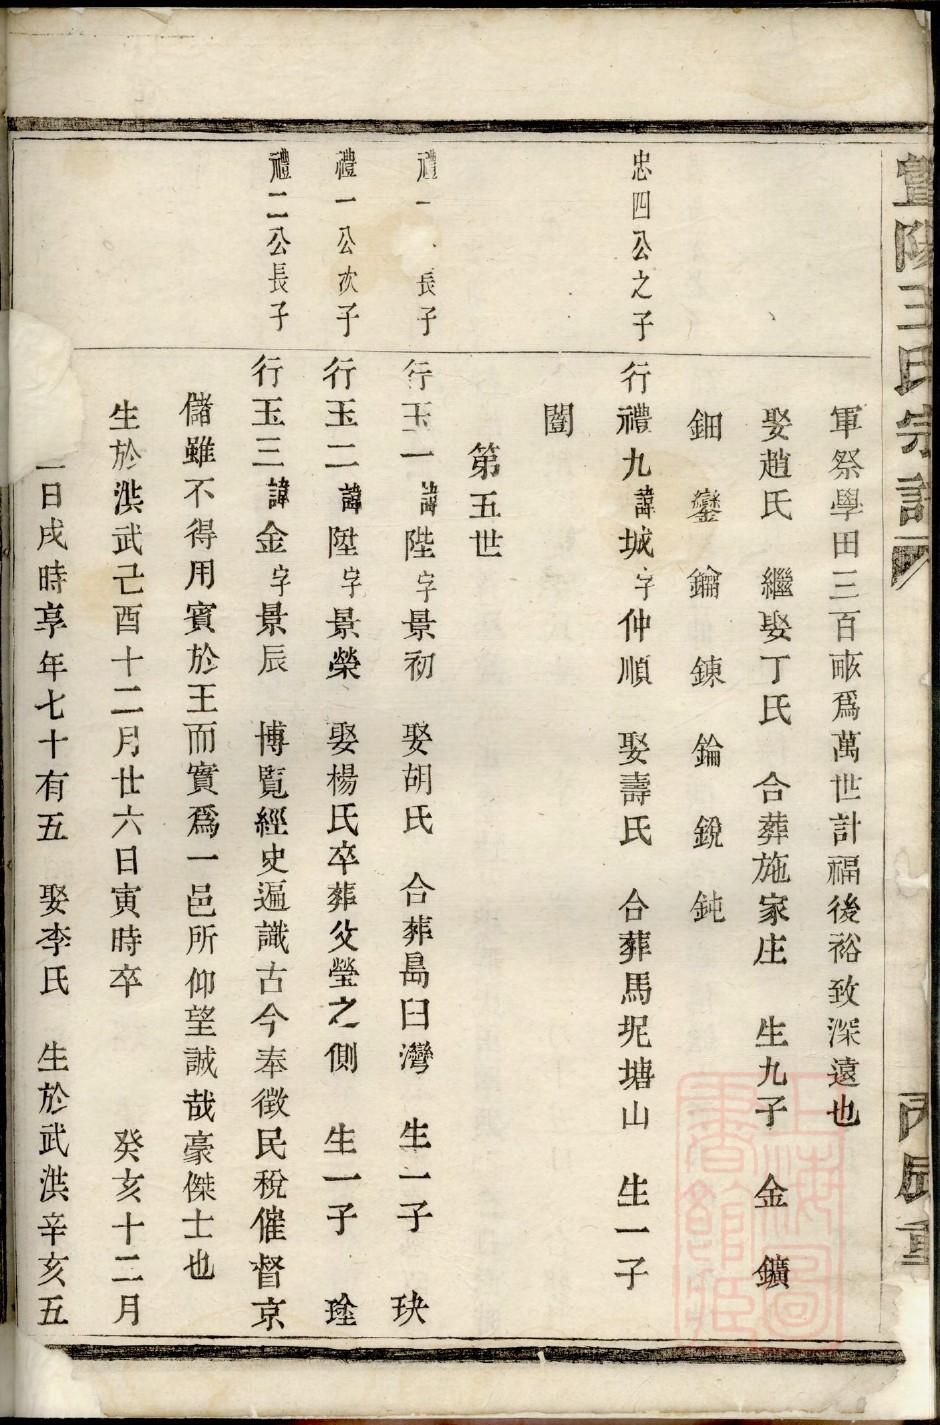 暨陽王氏宗譜
丙辰重
軍祭學田三百畝爲萬世計福後裕致深遠也
娶趙氏 繼娶丁氏 合葬施家庄 生九子 金 鑛
鈿 鑾 鑰 鍊 錀 銳 鈍
忠四公之子
行禮九諱城字仲順 娶壽氏 合葬馬坭塘山 生一子
闓
第五世
禮一 長子
行玉一諱陛字景初 娶胡氏 合葬島臼灣 生一子 玦
禮一公次子
行玉二諱陞字景榮 娶楊氏卒葬父塋之側 生一子 琻
禮二公長子
行玉三諱金字景辰 博覽經史遍識古今奉徵民稅催督京
儲雖不得用賓於王而實爲一邑所仰望誠哉豪傑士也
生於洪武己酉十二月廿六日寅時卒 癸亥十二月
一日戌時享年七十有五 娶李氏 生於武洪辛亥五
上海圖書館藏